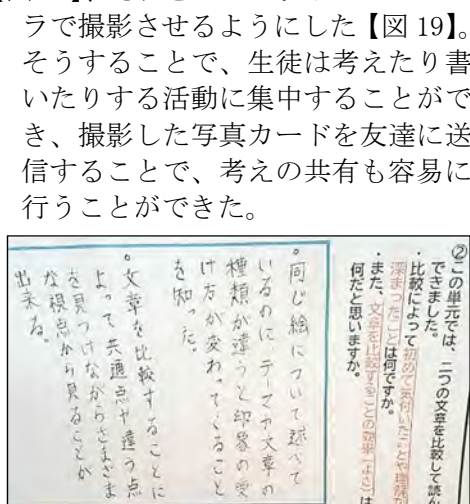 ラで撮影させるようにした【図 19】。
そうすることで、生徒は考えたり書
いたりする活動に集中することがで
き、撮影した写真カードを友達に送
信することで、考えの共有も容易に
行うことができた。
②この単元では、二つの文章を比較して読ん
できました。
・比較によって初めて気付いたことや理解が
深まったことは何ですか。
・また、文章を比較することの効果（よさ）は
何だと思いますか。
。同じ絵について述べて
いるのに、テーマや文章の
種類が違うと印象の受
け方が変わってくること
を知った。
。文章を比較することに
よって共通点や違う点
を見つけながらさまざま
な視点から見ることが
出来る。